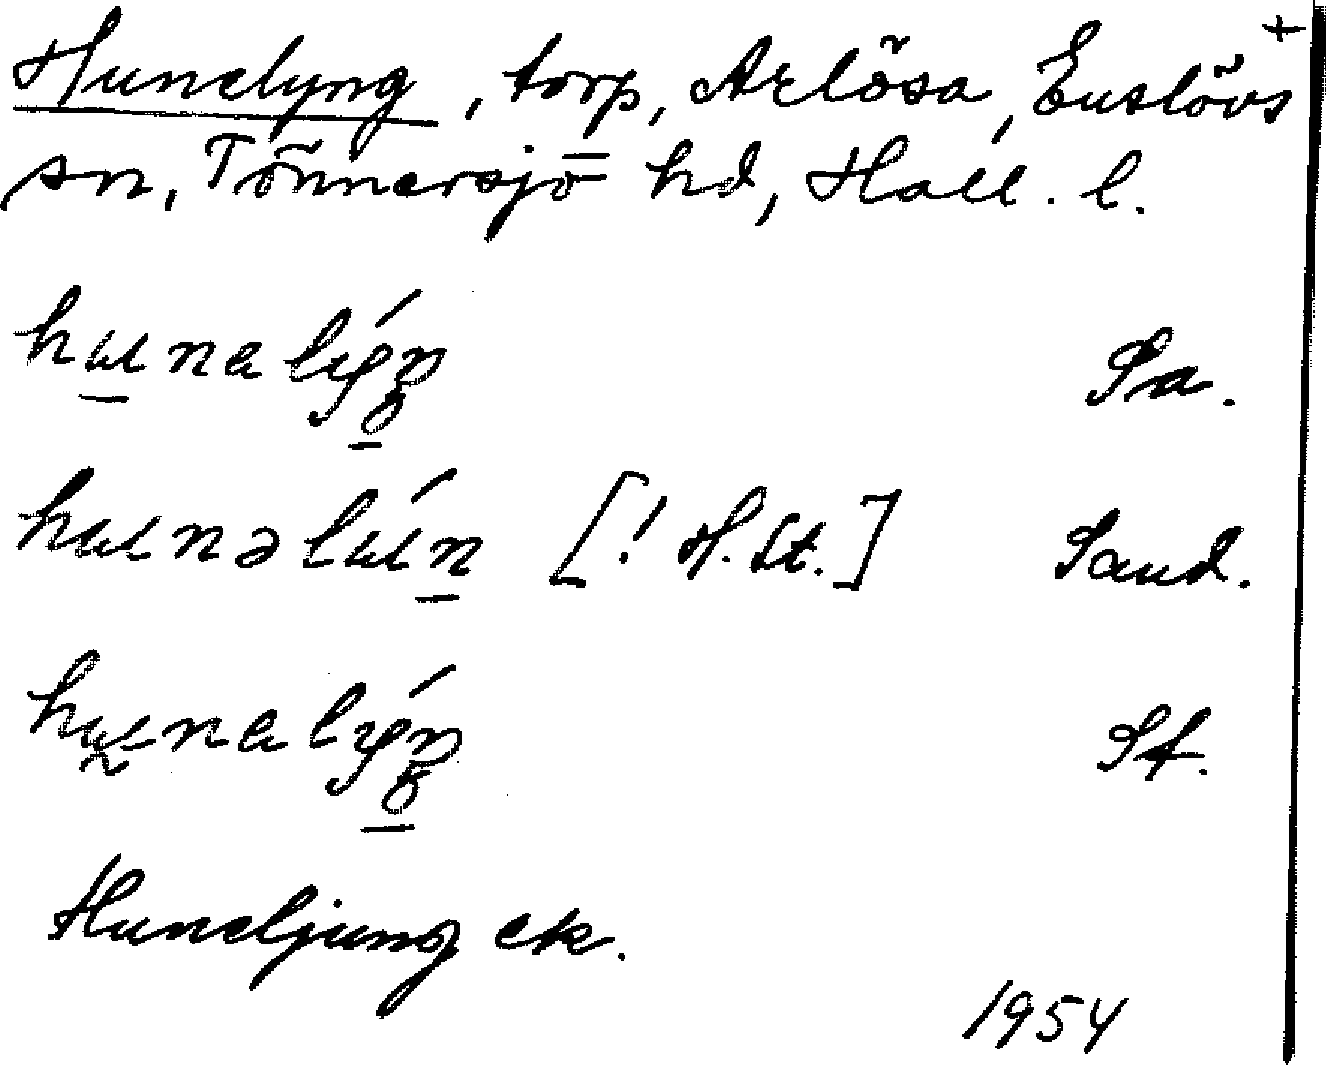 Hunelyng, torp, Årlösa, Euslövs +
sn, Tönnersjö hd, Hall. l.
hɯnalýŋ Sa.
hɯnəlɯ́n [! H. St.] Sand.
hɯnalýŋ St.
Huneljung ek.
1954